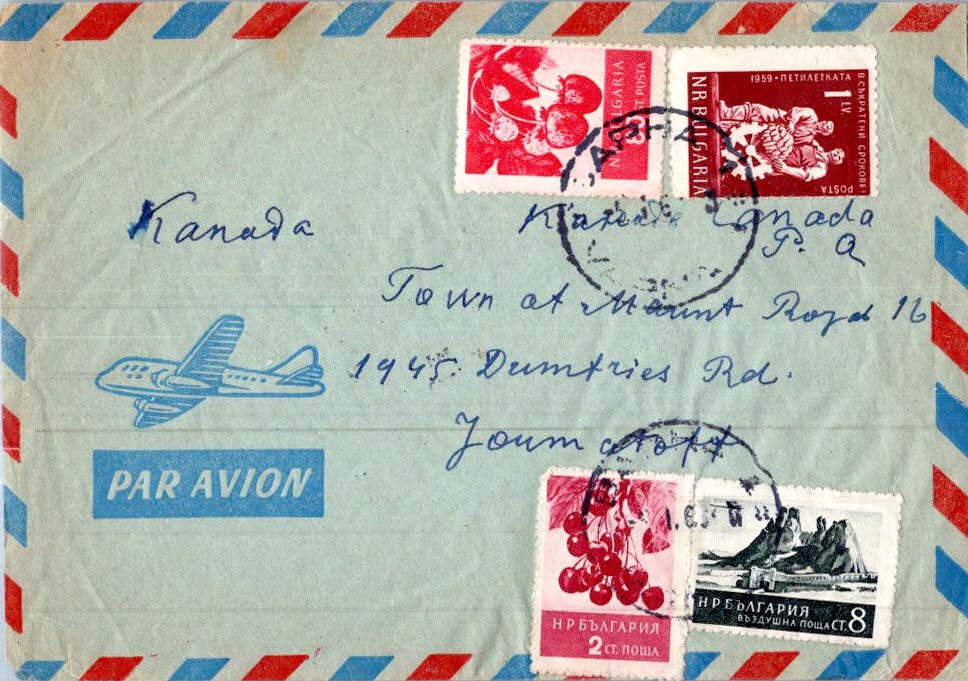 BULGARIA
СТ. POSTA
1959 · ПЕТИЛЕТКАТА
В СЪКРАТЕНИ СРОКОВЕ·
1 LV.
NR BULGARIA
POSTA
ВАРНА
Kanada
Canada
P. Q
Town at Mount Royd 16
1945 Dumtries Rd.
Joumatoff
PAR AVION
НРБЪЛГАРИЯ
2 СТ. ПОЩА
НРБЪЛГАРИЯ
ВЪЗДУШНА ПОЩА СТ. 8